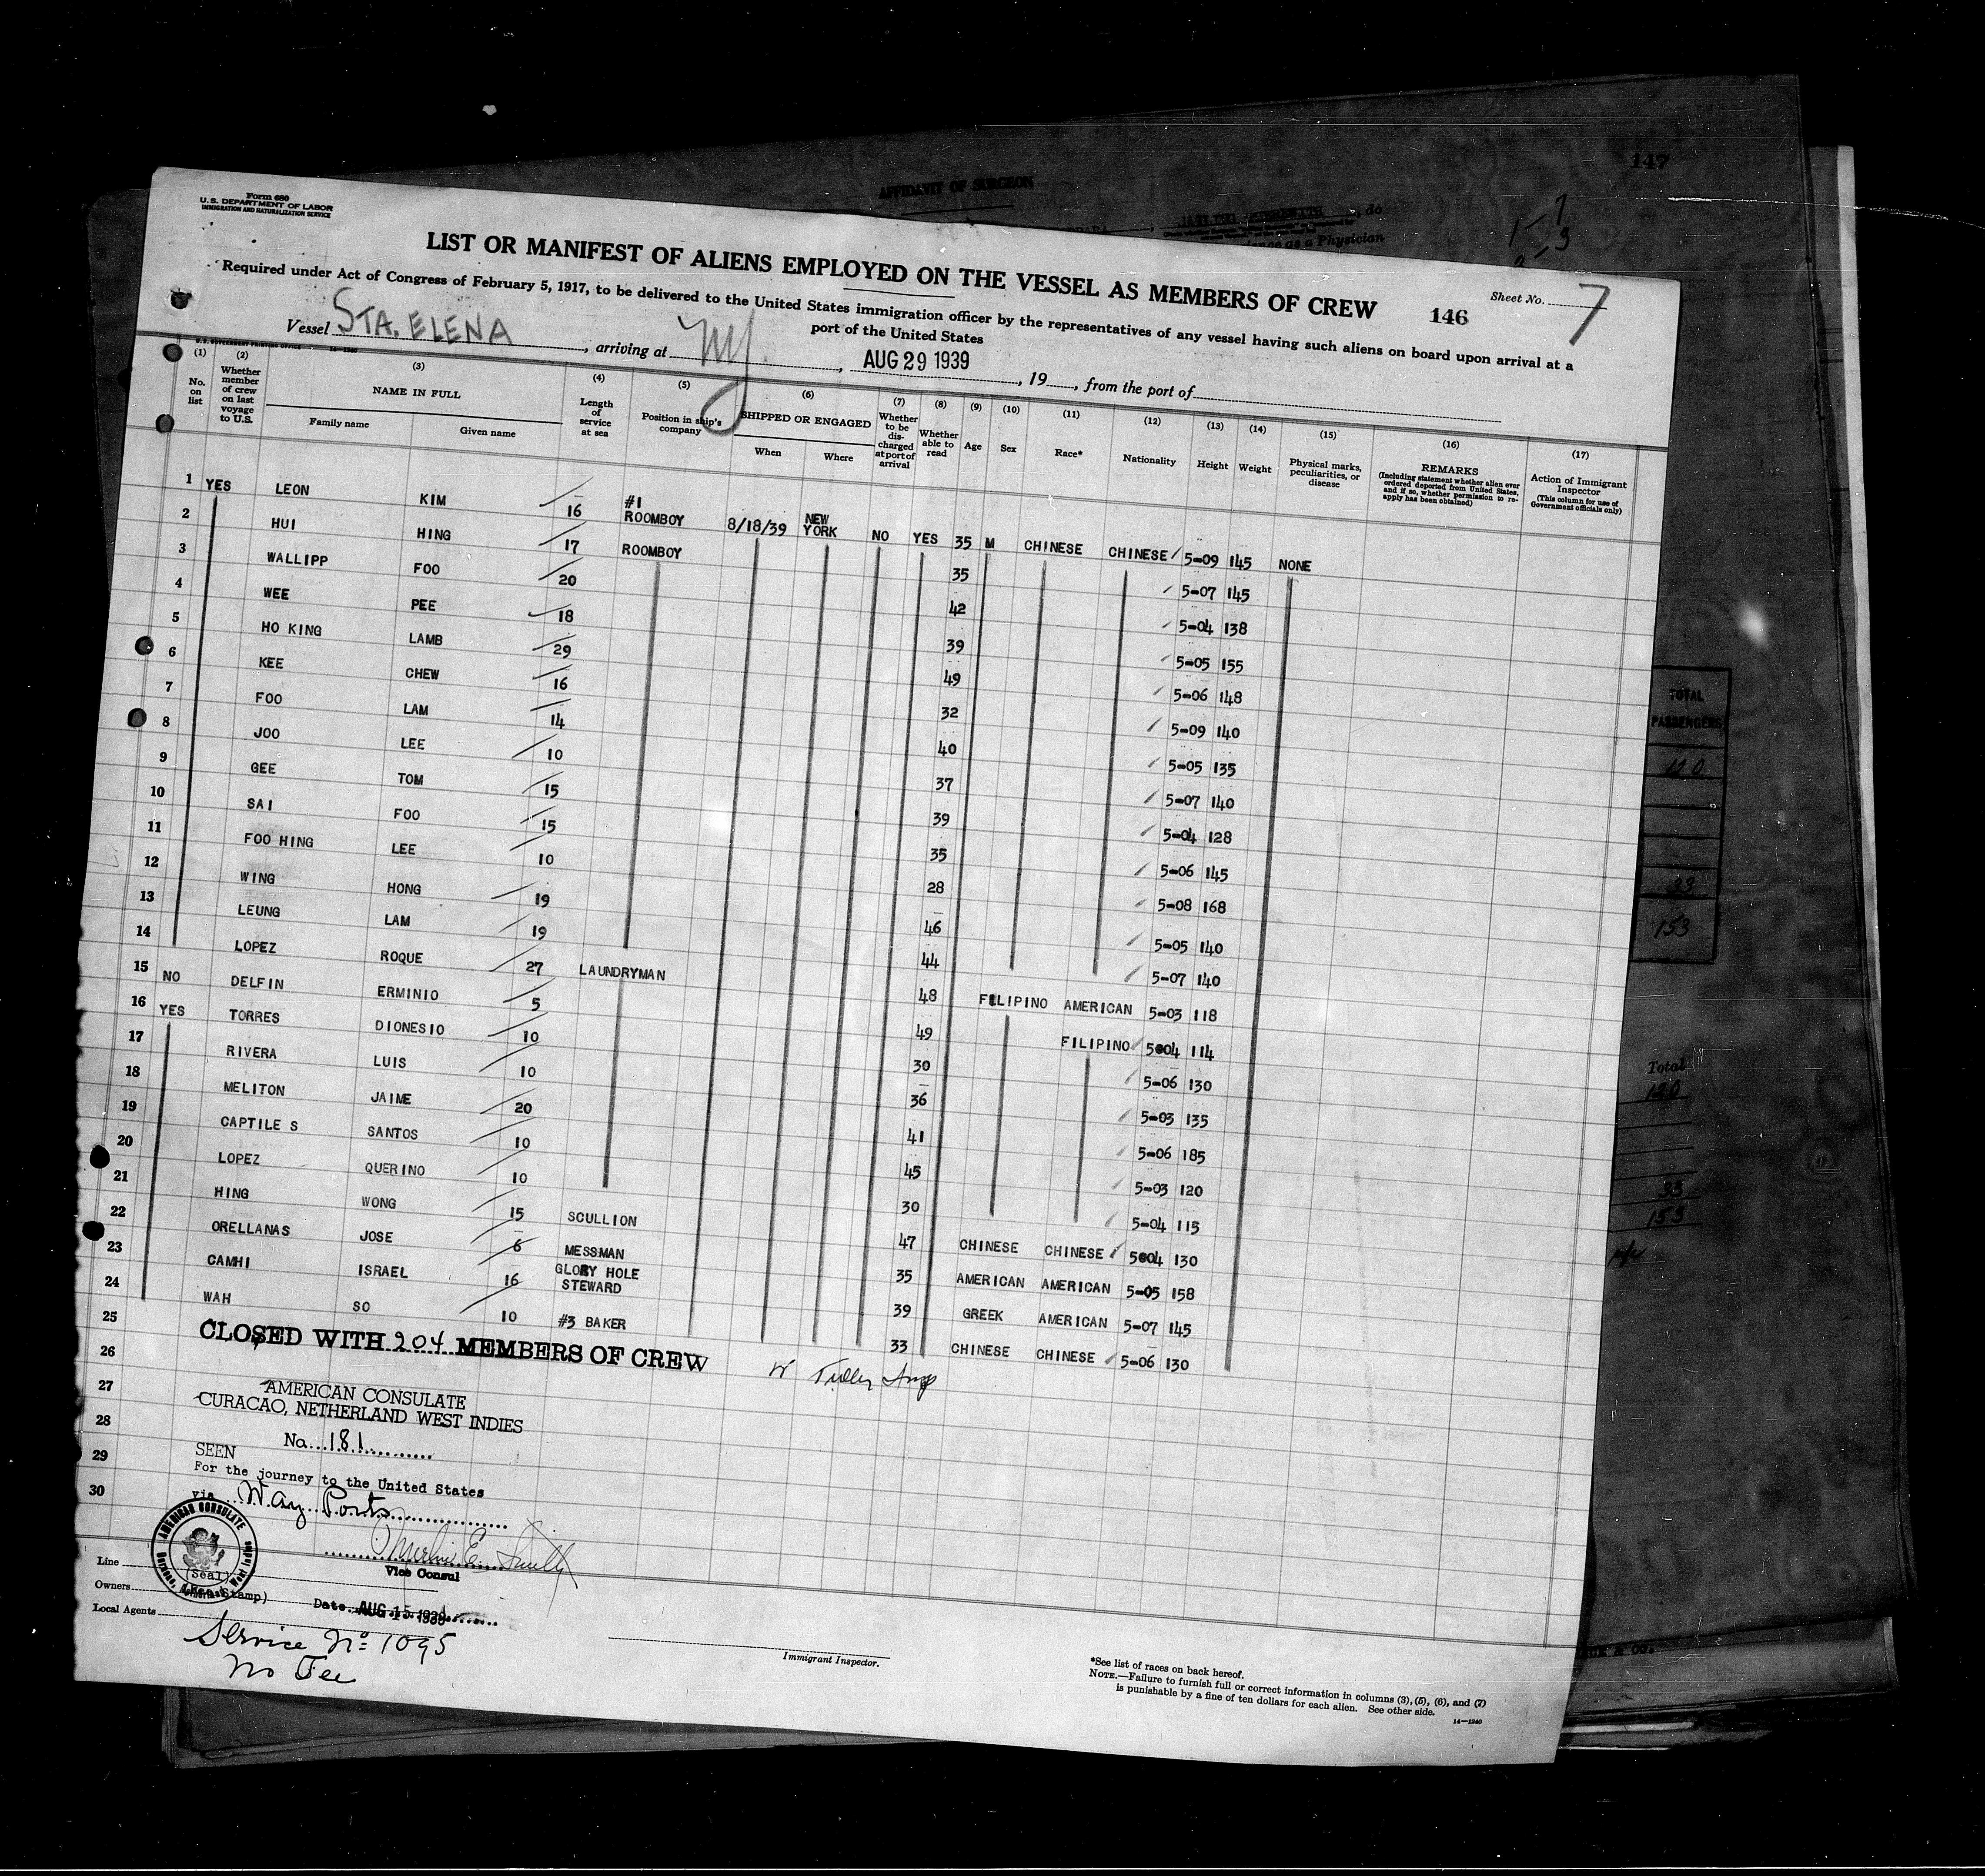 147
AFFIDAVIT OF SURGEON
, do
as a Physician
Form 680
U.S. DEPARTMENT OF LABOR
IMMIGRATION AND NATURALIZATION SERVICE
LIST OR MANIFEST OF ALIENS EMPLOYED ON THE VESSEL AS MEMBERS OF CREW
146
Sheet No. 7
Required under Act of Congress of February 5, 1917, to be delivered to the United States immigration officer by the representatives of any vessel having such aliens on board upon arrival at a
port of the United States
Vessel STA. ELENA, arriving at NY., AUG 29 1939, 19, from the port of
(1) No. on list
(2) Whether member of crew on last voyage to U.S.
(3) NAME IN FULL Family name Given name
(4) Length of service at sea
(5) Position in ship's company
(6) SHIPPED OR ENGAGED When Where
(7) Whether to be discharged at port of arrival
(8) Whether able to read
(9) Age
(10) Sex
(11) Race*
(12) Nationality
(13) Height
(14) Weight
(15) Physical marks, peculiarities, or disease
(16) REMARKS (Including statement whether alien ever ordered deported from United States, and if so, whether permission to reapply has been obtained)
(17) Action of Immigrant Inspector (This column for use of Government officials only)
1 YES LEON KIM 16 #1 ROOMBOY 8/18/39 NEW YORK NO YES 35 M CHINESE CHINESE 5-09 145 NONE
2 HUI HING 17 ROOMBOY 35 5-07 145
3 WALLIPP FOO 20 42 5-04 138
4 WEE PEE 18 39 5-05 155
5 HO KING LAMB 29 49 5-06 148
6 KEE CHEW 16 32 5-09 140
7 FOO LAM 14 40 5-05 135
8 JOO LEE 10 37 5-07 140
9 GEE TOM 15 39 5-04 128
10 SAI FOO 15 35 5-06 145
11 FOO HING LEE 10 28 5-08 168
12 WING HONG 19 46 5-05 140
13 LEUNG LAM 19 44 5-07 140
14 LOPEZ ROQUE 27 LAUNDRYMAN 48 FILIPINO AMERICAN 5-03 118
15 NO DELFIN ERMINIO 5 49 FILIPINO 5-04 114
16 YES TORRES DIONESIO 10 30 5-06 130
17 RIVERA LUIS 10 36 5-03 135
18 MELITON JAIME 20 41 5-06 185
19 CAPTILE S SANTOS 10 45 5-03 120
20 LOPEZ QUERINO 10 30 5-04 115
21 HING WONG 15 SCULLION 47 CHINESE CHINESE 5-04 130
22 ORELLANAS JOSE 6 MESSMAN 35 AMERICAN AMERICAN 5-05 158
23 CAMHI ISRAEL 16 GLORY HOLE STEWARD 39 GREEK AMERICAN 5-07 145
24 WAH SO 10 #3 BAKER 33 CHINESE CHINESE 5-06 130
25
CLOSED WITH 204 MEMBERS OF CREW
26
27
AMERICAN CONSULATE
CURACAO, NETHERLAND WEST INDIES
28
No. 181
29
SEEN
For the journey to the United States
30
via Way Ports
Vice Consul
AMERICAN CONSULATE
(Seal)
Line
Owners
(Fee Stamp)
Date AUG 15 1939
Local Agents
Service No 1095
No Fee
Immigrant Inspector.
*See list of races on back hereof.
NOTE.—Failure to furnish full or correct information in columns (3), (5), (6), and (7)
is punishable by a fine of ten dollars for each alien. See other side.
14—1240
TOTAL
PASSENGERS
120
33
153
Total
120
33
153